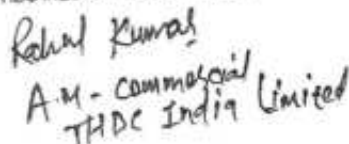 Rahul Kumar
A.M - Commercial
THDC India Limited